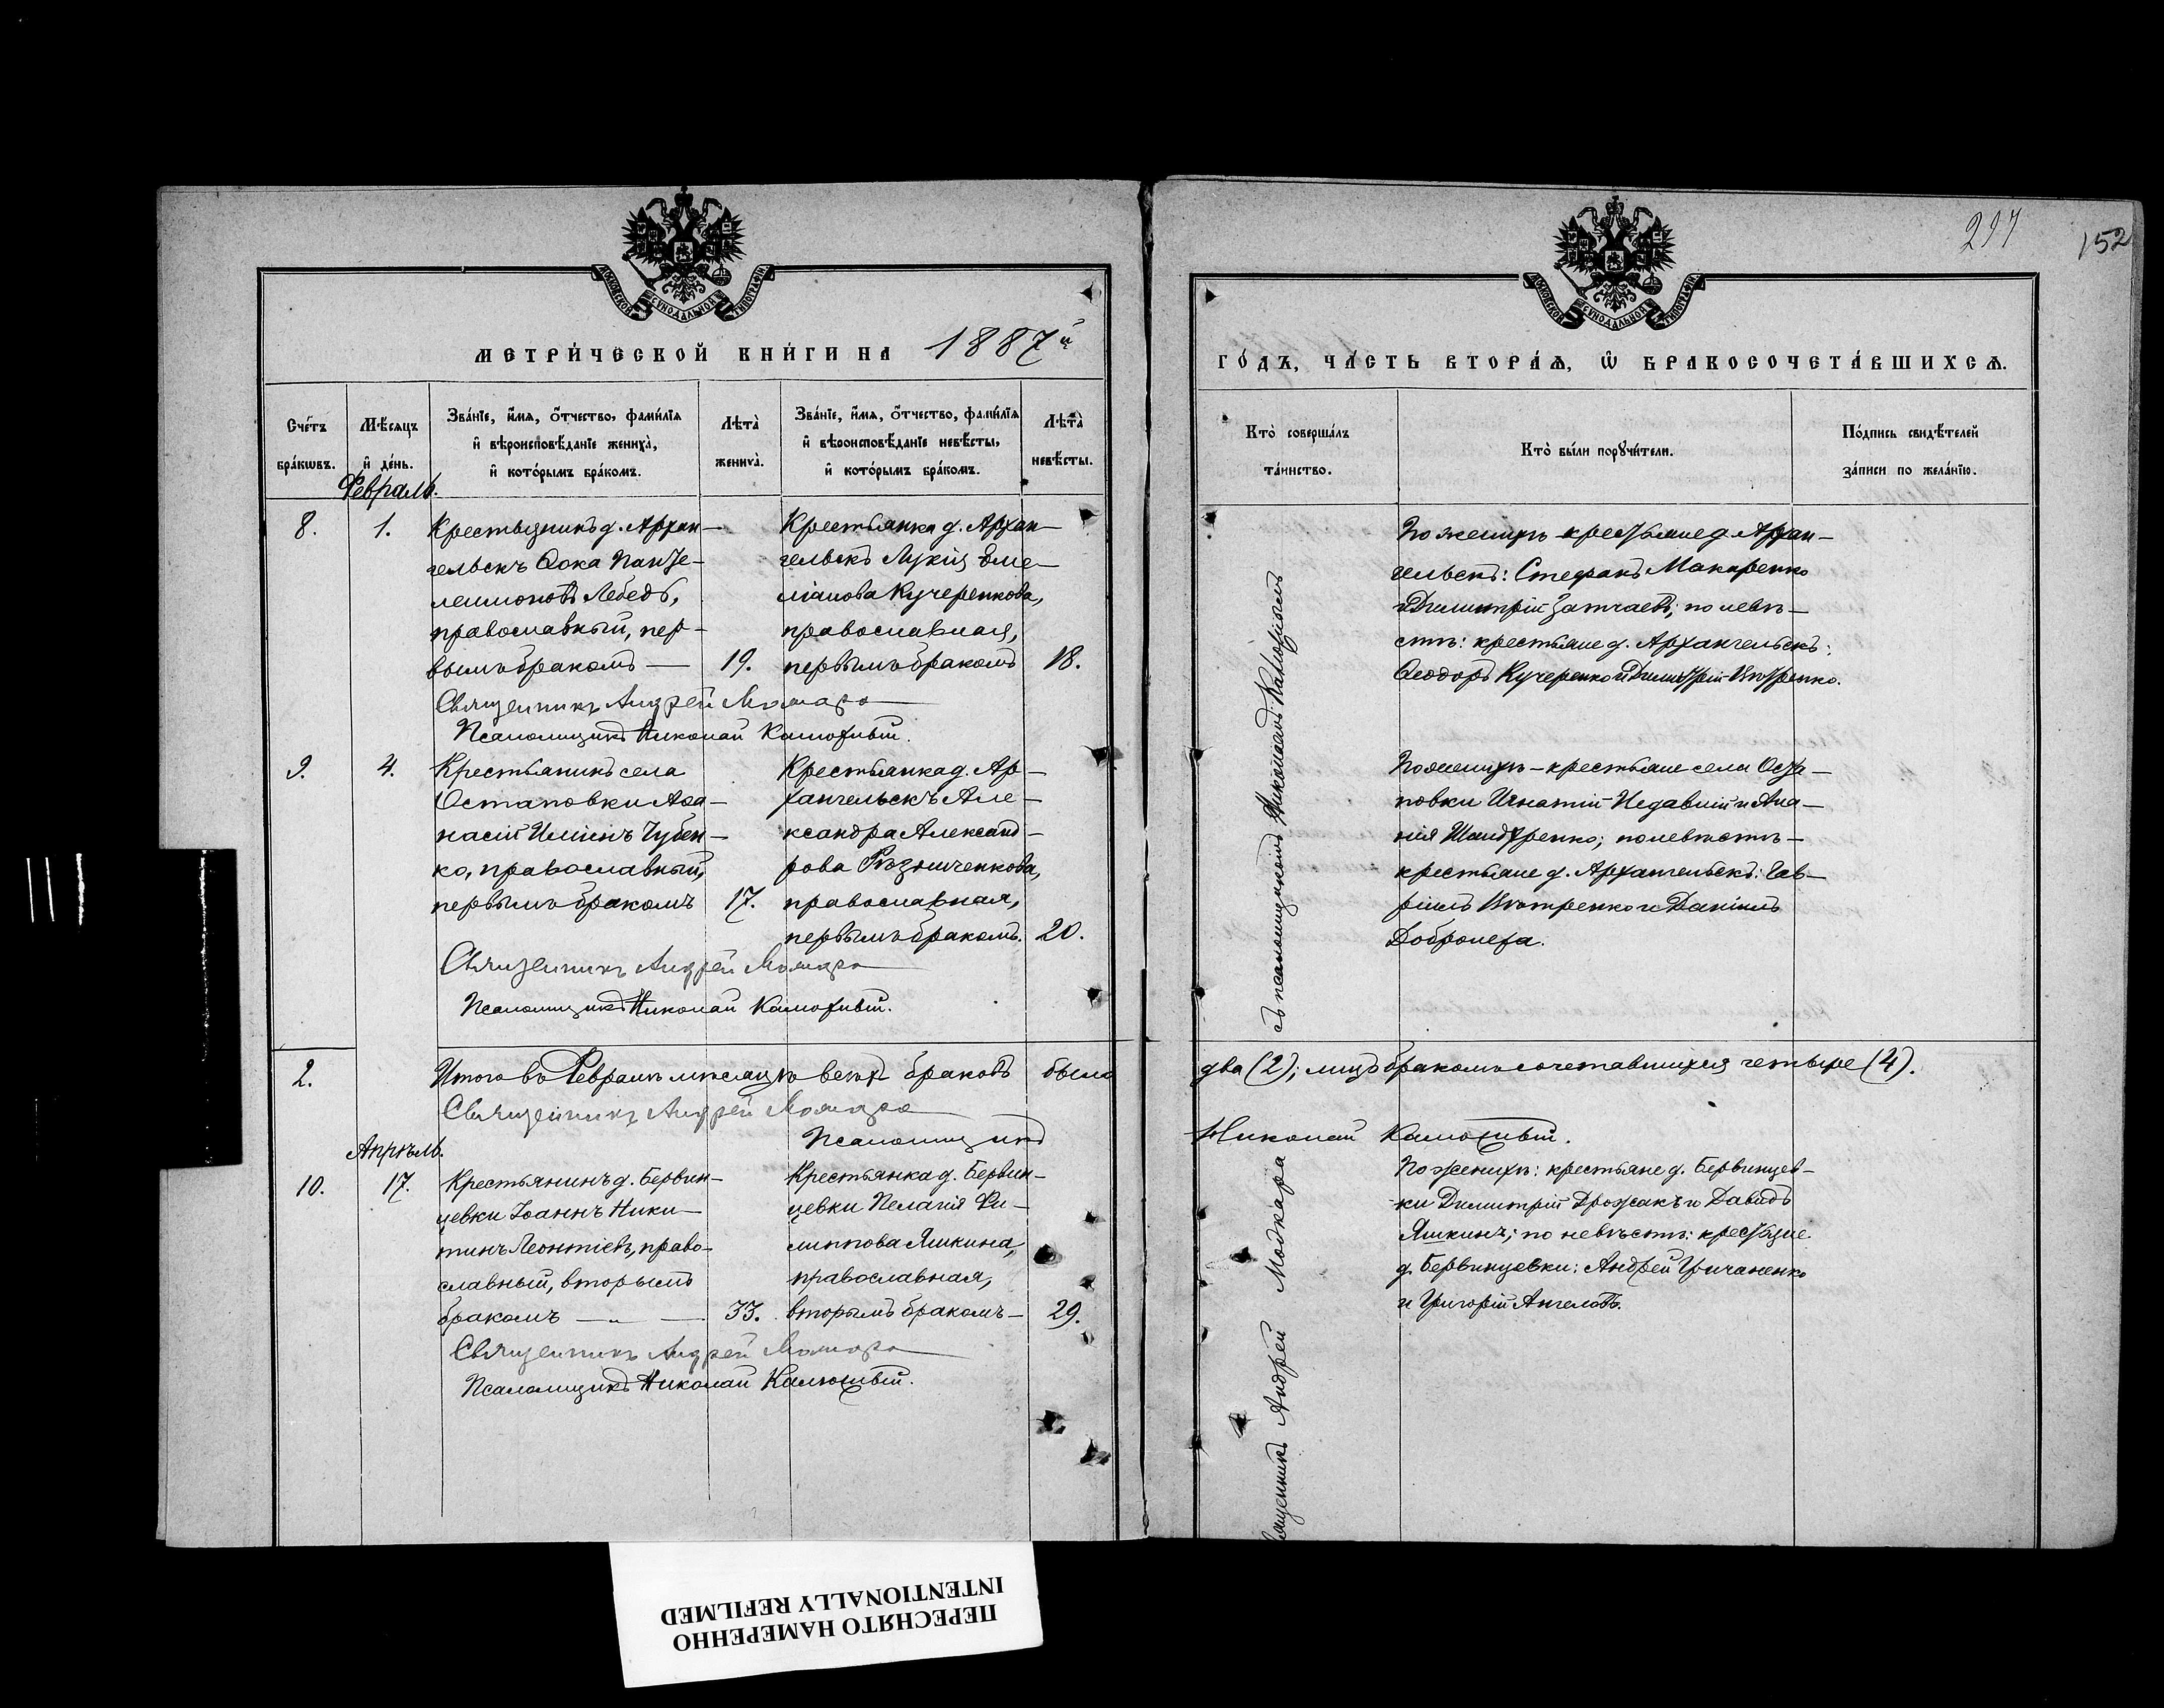 297
152
МОСКОВСКОЙ СУНОДАЛЬНОЙ ТИПОГРАФІИ
МОСКОВСКОЙ СУНОДАЛЬНОЙ ТИПОГРАФІИ
МЕТРИ́ЧЕСКОЙ КНИ́ГИ НА 1887й
ГО́ДЪ, ЧА́СТЬ ВТОРА́Ѧ, Ѿ БРАКОСОЧЕТА́ВШИХСѦ.
Сче́тъ бра́кѡвъ.
Мѣ́сяцъ и҆ де́нь.
Зва́нїе, и҆́мѧ, ѻ҆́тчество, фами́лїѧ
и҆ вѣроисповѣ́данїе жениха̀,
и҆ кото́рымъ бра́комъ.
Лѣ́та̀ жениха̀.
Зва́нїе, и҆́мѧ, ѻ҆́тчество, фами́лїѧ
и҆ вѣроисповѣ́данїе невѣ́сты,
и҆ кото́рымъ бра́комъ.
Лѣ́та̀ невѣ́сты.
Кто̀ соверша́лъ та́инство.
Кто̀ бы́ли порꙋчи́тели.
По́дпись свидѣ́телей за́писи по жела́нїю.
Февраль.
8.
1.
Крестьянинъ д. Архан-
гельскъ Ѳока Панте-
леимоновъ Лебедь,
православный, пер-
вымъ бракомъ —
19.
Крестьянка д. Архан-
гельскъ Лукія Эме-
ліанова Кучеренкова,
православная,
первымъ бракомъ
18.
По женихѣ крестьяне д Архан-
гельскъ: Стефанъ Макаренко
и Димитрій; по невѣ-
стѣ: крестьяне д. Архангельскъ:
Ѳеодоръ Кучеренко и Димитрій
Священникъ Андрей
Псаломщикъ Николай
9.
4.
Крестьянинъ села
Остаповки Аѳа-
насій Иліинъ Чубен-
ко, православный,
первымъ бракомъ
17.
Крестьянка д. Ар-
хангельскъ Але-
ксандра Александ-
рова
православная,
первымъ бракомъ.
20.
По женихѣ - крестьяне села Оста-
повки Игнатій и Ана-
нія; по невѣстѣ -
крестьяне д. Архангельскъ: Гав-
ріилъ и Даніилъ
Священникъ Андрей
Псаломщикъ Николай
2.
Итого въ Февралѣ мѣсяцѣ всѣхъ браковъ было
два (2); лицъ бракомъ сочетавшихся четыре (4).
Священникъ Андрей
Псаломщикъ
Николай
Апрѣль.
10.
17.
Крестьянинъ д. Бервин-
цевки Іоаннъ Ники-
тинъ Леонтіевъ, право-
славный, вторымъ
бракомъ — „ —
33.
Крестьянка д. Бервин-
цевки Пелагія Фи-
липпова Яшкина,
православная,
вторымъ бракомъ —
29.
По женихѣ: крестьяне д. Бервинцев-
ки Димитрій Дрожакъ и Давидъ
Яшкинъ; по невѣстѣ: крестьяне
д. Бервинцевки: Андрей Гричаненко
и Григорій Ангеловъ.
Священникъ Андрей
Псаломщикъ Николай
Андрей
съ псаломщикомъ Николаемъ
ПЕРЕСНЯТО НАМЕРЕННО
INTENTIONALLY REFILMED